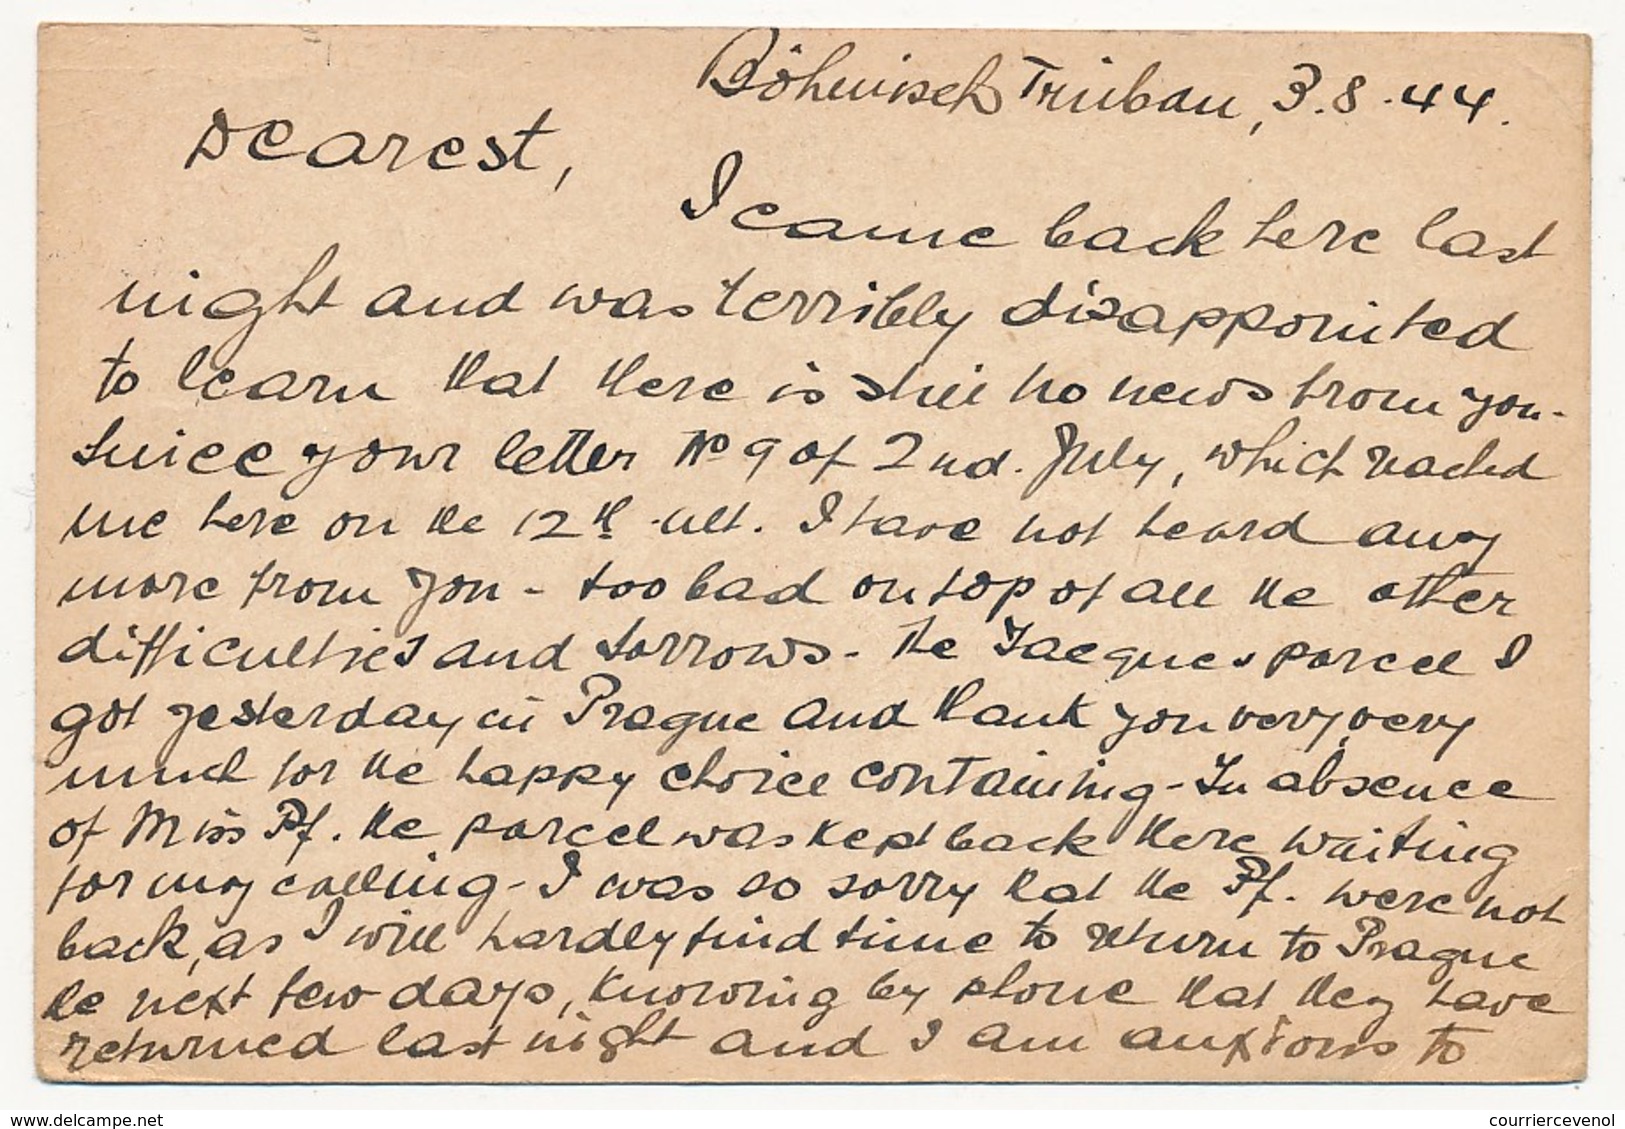 Böhmisch Trübau, 3.8.44.
Dearest,
I came back here last
night and was terribly disappointed
to learn that there is still no news from you.
Since your letter No 9 of 2nd. July, which reached
me here on the 12th ult. I have not heard any
more from you - too bad on top of all the other
difficulties and sorrows - the Jacques parcel I
got yesterday in Prague and thank you very, very
much for the happy choice containing - In absence
of Miss Pf. the parcel was kept back there waiting
for my calling - I was so sorry that the Pf. were not
back, as I will hardly find time to return to Prague
the next few days, knowing by phone that they have
returned last night and I am anxious to
courriercevenol
delcampe.net